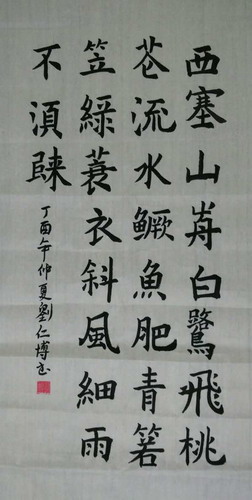 西塞山歬白鷺飛桃
芲流水鳜魚肥青箬
笠綠蓑衣斜風細雨
不湏䢜
丁酉年仲夏劉仁博书